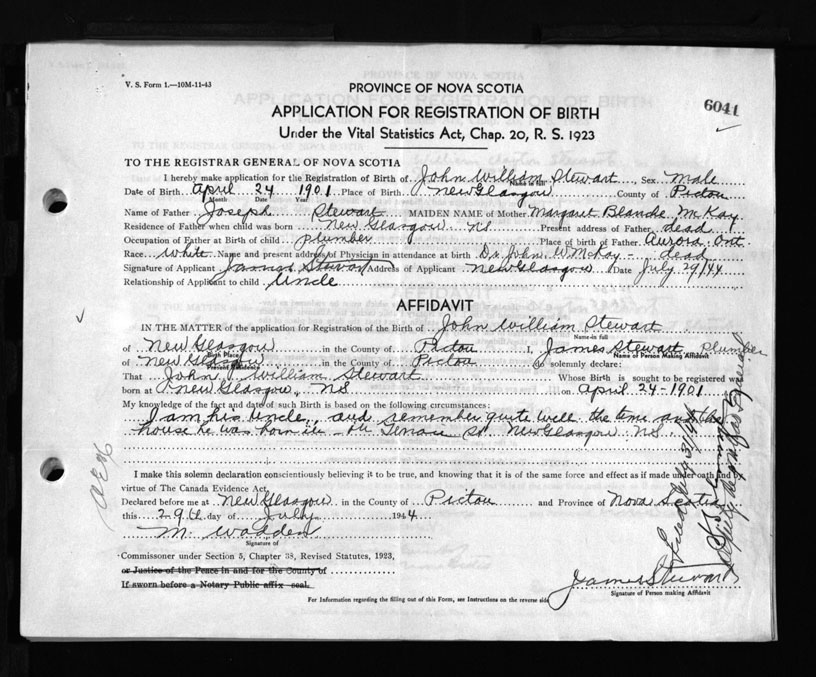 V. S. Form 1.—10M-11-43
6041
PROVINCE OF NOVA SCOTIA
APPLICATION FOR REGISTRATION OF BIRTH
Under the Vital Statistics Act, Chap. 20, R. S. 1923
TO THE REGISTRAR GENERAL OF NOVA SCOTIA
I hereby make application for the Registration of Birth of John William Stewart Sex Male
Name in full
Date of Birth April 24 1901 Place of Birth New Glasgow County of Pictou
Month Date Year
Name of Father Joseph Stewart MAIDEN NAME of Mother Margaret Blanche McKay
Residence of Father when child was born New Glasgow NS Present address of Father dead
Occupation of Father at Birth of child plumber Place of Birth of Father Aurora Ont
Race White Name and present address of Physician in attendance at birth Dr John W McKay - dead
Signature of Applicant James Stewart Address of Applicant New Glasgow Date July 29/44
Relationship of Applicant to child Uncle
AFFIDAVIT
IN THE MATTER of the application for Registration of the Birth of John William Stewart
Name in full
of New Glasgow in the County of Pictou I, James Stewart plumber
Birth Place Name of Person Making Affidavit
of New Glasgow in the County of Pictou do solemnly declare:
Present Residence
That John William Stewart Whose Birth is sought to be registered was
born at New Glasgow, NS on April 24-1901
My knowledge of the fact and date of such Birth is based on the following circumstances:
I am his Uncle, and remember quite well the time and the
house he was born in St. New Glasgow NS.
I make this solemn declaration conscientiously believing it to be true, and knowing that it is of the same force and effect as if made under oath and by
virtue of The Canada Evidence Act.
Declared before me at New Glasgow in the County of Pictou and Province of Nova Scotia
this 29th day of July 1944
M. Wadden
Signature of
Commissioner under Section 5, Chapter 38, Revised Statutes, 1923,
or Justice of the Peace in and for the County of
If sworn before a Notary Public affix seal.
James Stewart
Signature of Person making Affidavit
For Information regarding the filling out of this Form, see Instructions on the reverse side